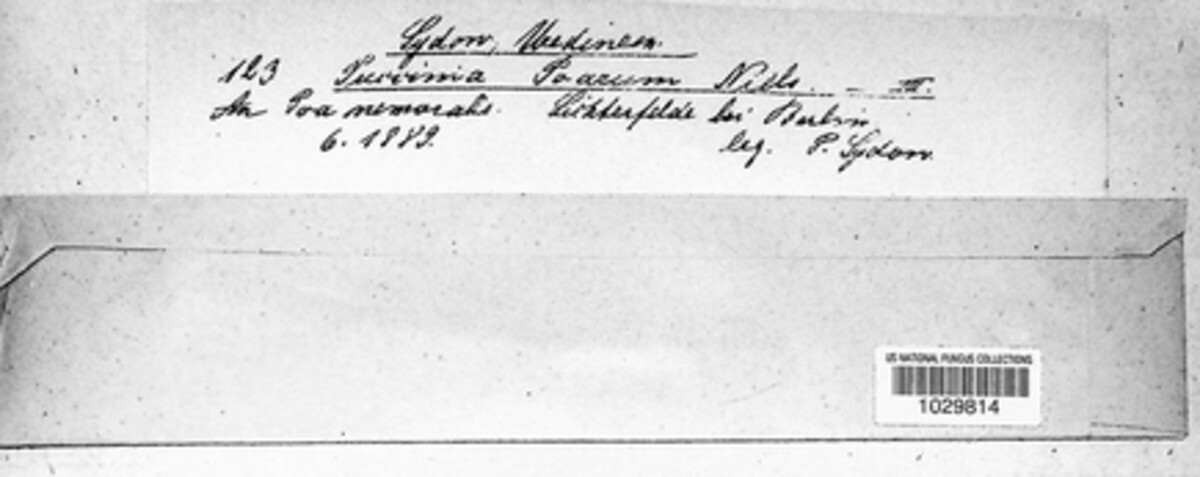 Sydow, Uredineen.
123 Puccinia Poarum Niels. - III.
An Poa nemoralis. Lichterfelde bei Berlin
6. 1889. leg. P. Sydow.
US NATIONAL FUNGUS COLLECTIONS
1029814